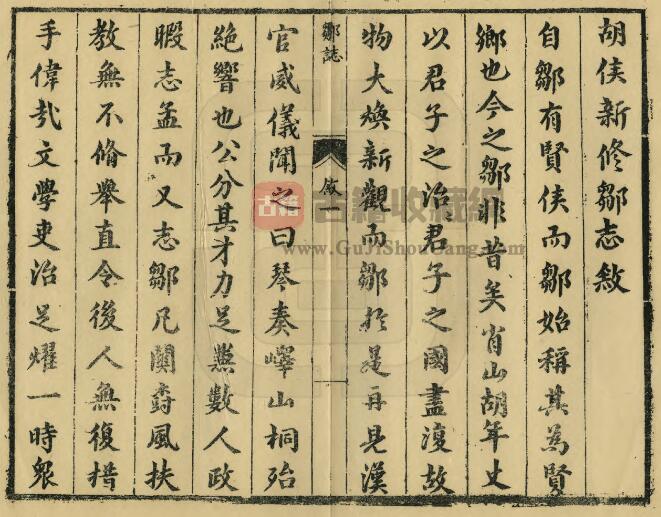 胡侯新修鄒志敘
自鄒有賢侯而鄒始稱其為賢
鄉也今之鄒非昔矣肖山胡年丈
以君子之治君子之國盡復故
物大煥新觀而鄒於是再見漢
鄒誌
敘一
一
官威儀聞之曰琴奏嶧山桐殆
絕響也公分其才力足兼數人政
暇志孟而又志鄒凡關樹風扶
教無不脩舉直令後人無復措
手偉哉文學吏治足耀一時眾
古籍
古籍收藏網
www.GuJiShouCang.com